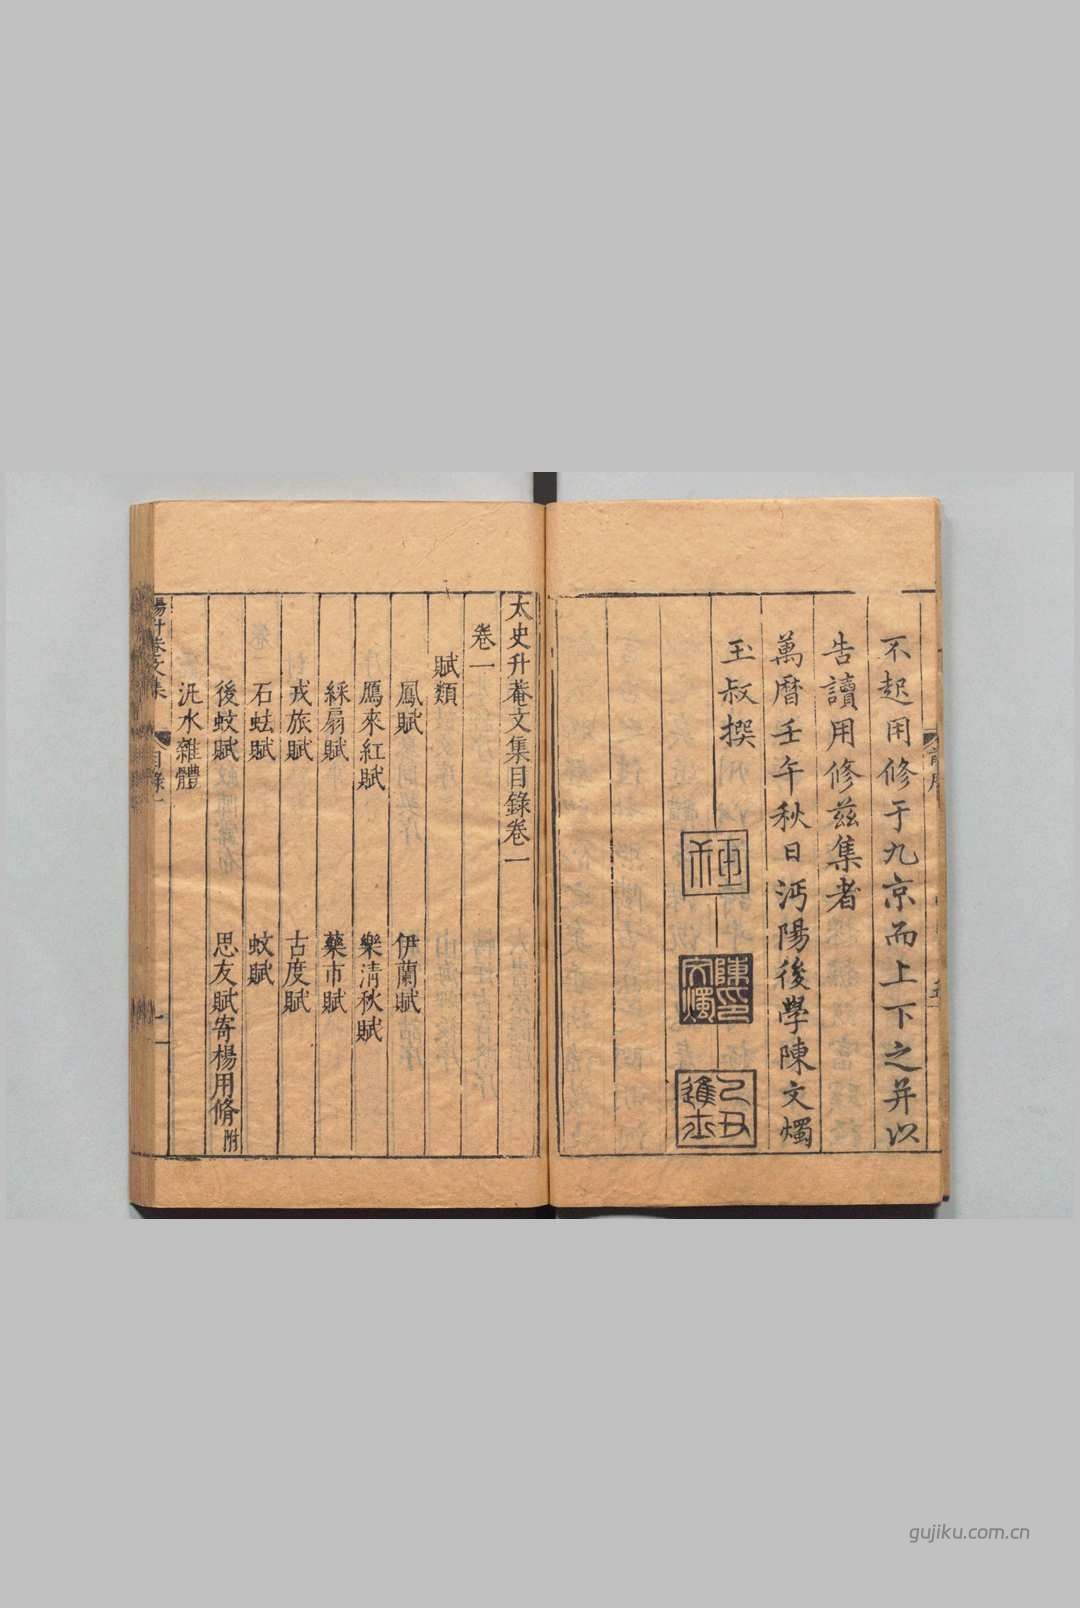 不起用修于九京而上下之并以
告讀用修茲集者
萬曆壬午秋日沔陽後學陳文燭
玉叔撰
陳氏文燭
己丑進士
太史升菴文集目錄卷一
卷一
賦類
鳳賦 伊蘭賦
鴈來紅賦 樂清秋賦
綵扇賦 藥市賦
戎旅賦 古度賦
石蛙賦 蚊賦
後蚊賦 思友賦寄楊用脩附
汎水雜體
楊升菴文集 目錄一
gujiku.com.cn